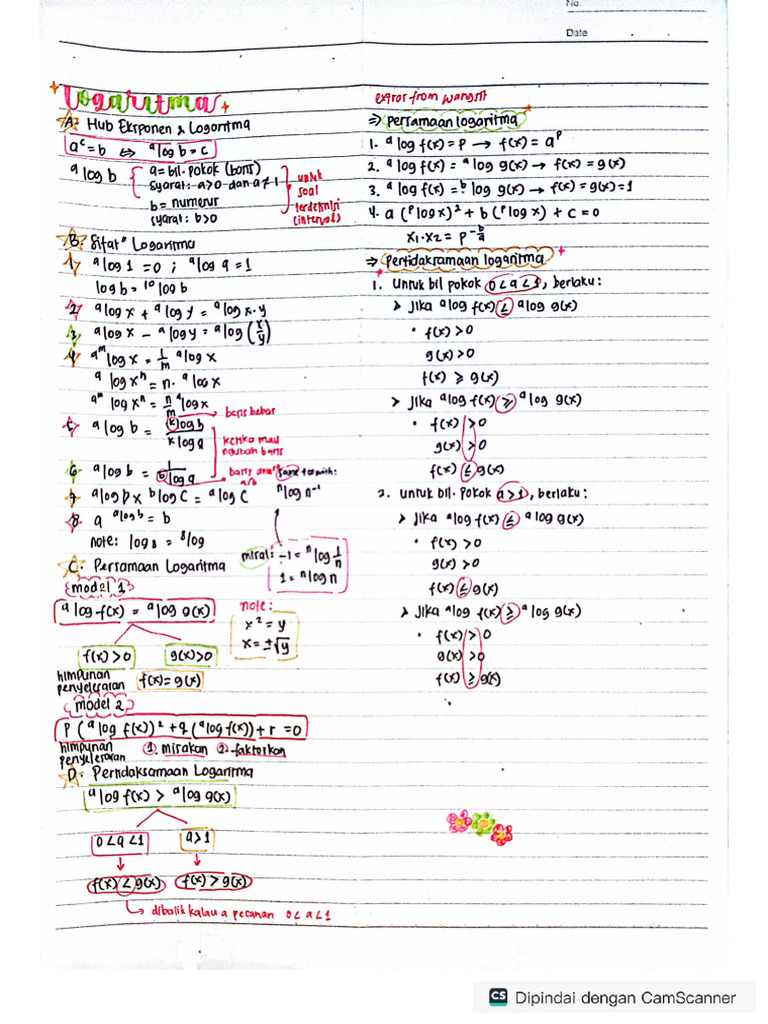 No.
Date
Logaritma
A. Hub Eksponen & Logaritma
aᶜ = b ⇔ ᵃlog b = c
ᵃlog b
a = bil. pokok (basis)
syarat: a>0 dan a≠1
b = numerus
syarat: b>0
untuk soal terdefinisi (interval)
B. Sifat" Logaritma
1. ᵃlog 1 = 0 ; ᵃlog a = 1
log b = ¹⁰log b
2. ᵃlog x + ᵃlog y = ᵃlog x.y
3. ᵃlog x − ᵃlog y = ᵃlog (x/y)
4. aᵐ log x = 1/m ᵃlog x
ᵃlog xⁿ = n. ᵃlog x
aᵐ log xⁿ = n/m ᵃlog x
5. ᵃlog b = k log b / k log a
basis bebas
ketika mau
basis
6. ᵃlog b = 1 / b log a
same as with:
ⁿlog n⁻¹
7. ᵃlog b x ᵇlog c = ᵃlog c
8. a ᵃlog b = b
note: log 8 = ⁸log
misal: −1 = ⁿlog 1/n
1 = ⁿlog n
C. Persamaan Logaritma
model 1
ᵃlog f(x) = ᵃlog g(x)
f(x) > 0 g(x) > 0
himpunan penyelesaian f(x) = g(x)
note:
x² = y
x = ±√y
model 2
P (ᵃlog f(x))² + q (ᵃlog f(x)) + r = 0
himpunan penyelesaian ① misalkan ② faktorkan
D. Pertidaksamaan Logaritma
ᵃlog f(x) > ᵃlog g(x)
0 < a < 1 a > 1
f(x) < g(x) f(x) > g(x)
dibalik kalau a pecahan 0 < a < 1
extras from wangsit
⇒ persamaan logaritma
1. ᵃlog f(x) = p → f(x) = aᵖ
2. ᵃlog f(x) = ᵃlog g(x) → f(x) = g(x)
3. ᵃlog f(x) = ᵇlog g(x) → f(x) = g(x) = 1
4. a (ᵖlog x)² + b (ᵖlog x) + c = 0
x₁.x₂ = p^(-b/a)
⇒ Pertidaksamaan logaritma
1. Untuk bil pokok 0 < a < 1, berlaku:
> Jika ᵃlog f(x) ≤ ᵃlog g(x)
• f(x) > 0
g(x) > 0
f(x) ≥ g(x)
> Jika ᵃlog f(x) ≥ ᵃlog g(x)
• f(x) > 0
g(x) > 0
f(x) ≤ g(x)
2. Untuk bil. pokok a > 1, berlaku:
> Jika ᵃlog f(x) ≤ ᵃlog g(x)
• f(x) > 0
g(x) > 0
f(x) ≤ g(x)
> Jika ᵃlog f(x) ≥ ᵃlog g(x)
• f(x) > 0
g(x) > 0
f(x) ≥ g(x)
CS Dipindai dengan CamScanner